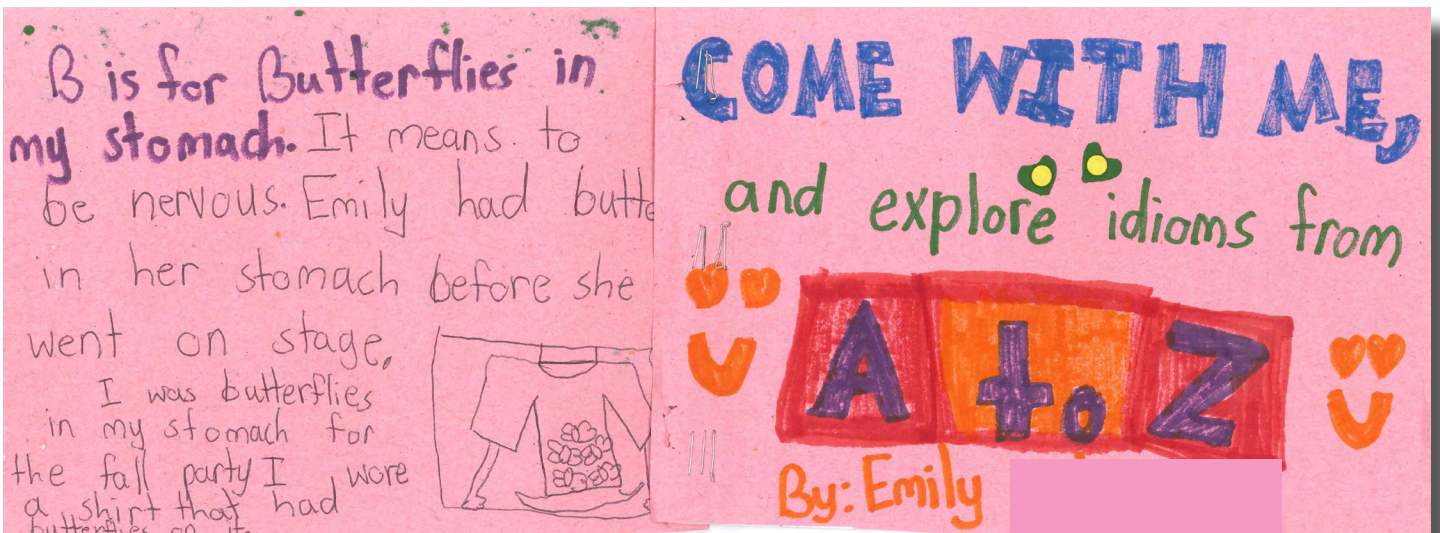 B is for Butterflies in
my stomach. It means to
be nervous. Emily had butte
in her stomach before she
went on stage.
I was butterflies
in my stomach for
the fall party I wore
a shirt that had
butterflies on it.
COME WITH ME,
and explore idioms from
A to Z
By: Emily